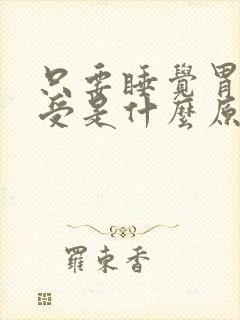 只要睡覺胃
受是什麼原
羅東香